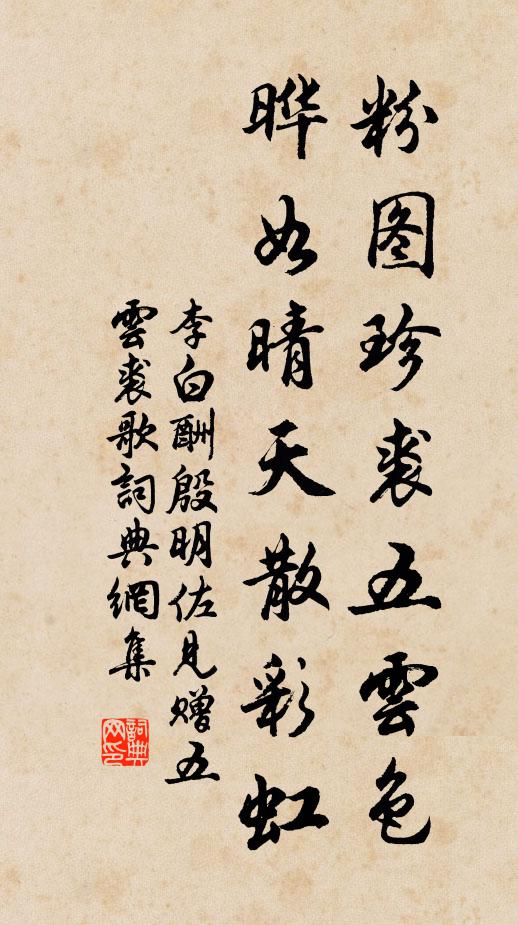 粉图珍裘五雲色
晔如晴天散彩虹
李白酬殷明佐見赠五
雲裘歌詞典網集
詞典网印